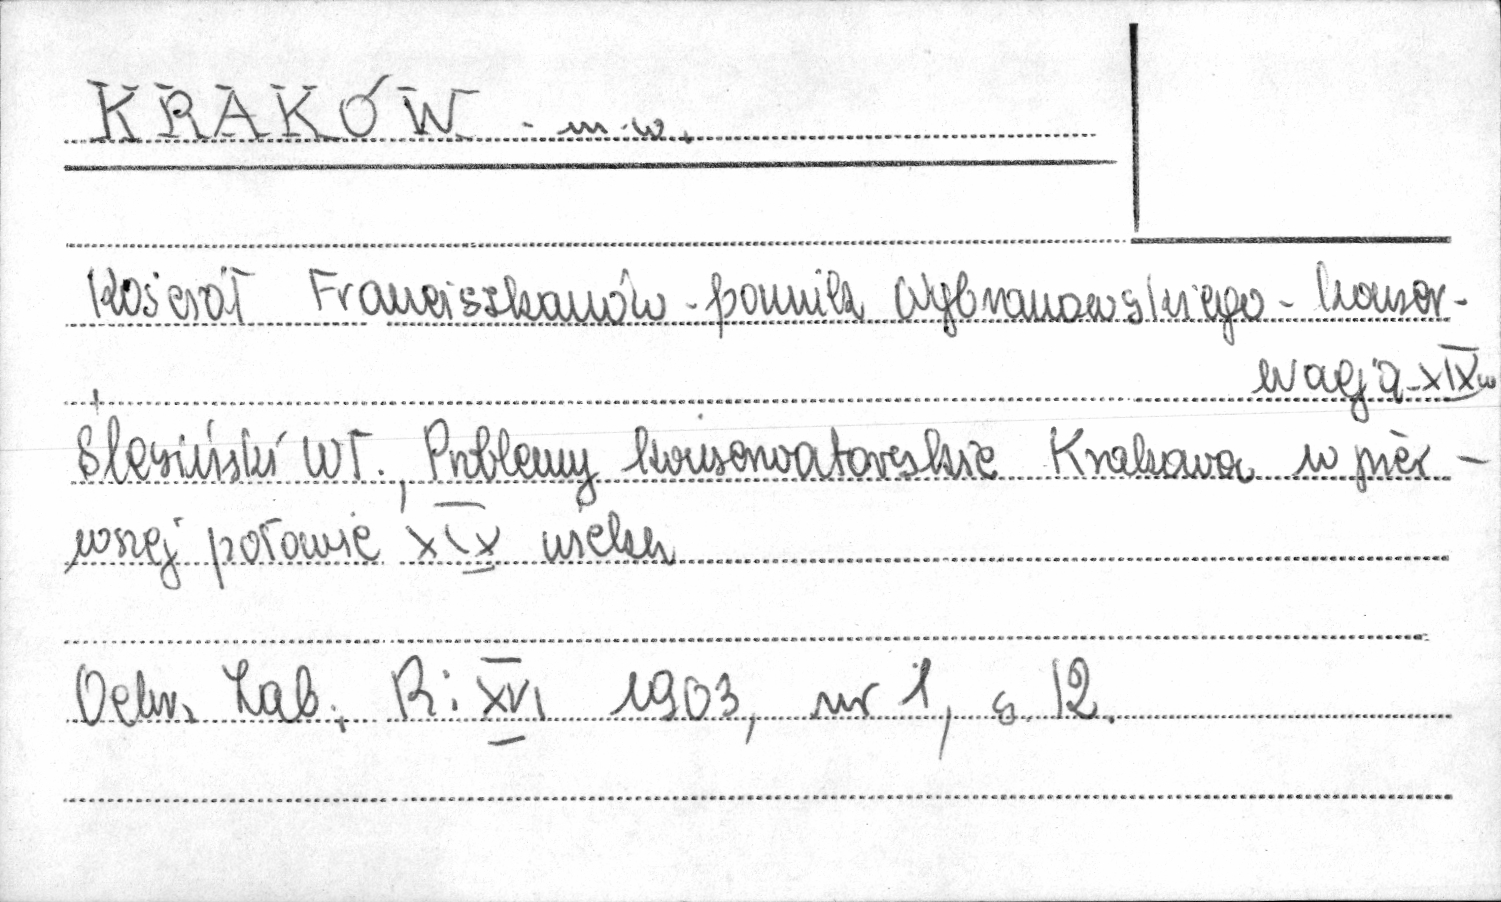 KRAKÓW - m.w.
Kościół Franciszkanów - pomnik Wybranowskiego - konser-
wacja - XIX w
Ślesiński Wł., Problemy konserwatorskie Krakowa w pier-
wszej połowie XIX wieku
Ochr. Zab. R: XVI 1903, nr 1, s. 12.